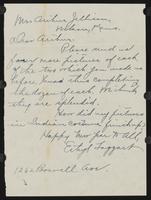 Mrs Arthur Jellison,
Wilsey, Kans.
Dear Arthur:
Please send us
four more pictures of each
of the two which you made us
before Xmas thus completing
the dozen of each. We think
they are splendid.
How did my pictures
in Indian costume finish up?
Happy New Year to All,
Ethyl Taggart
1262 Boswell Ave